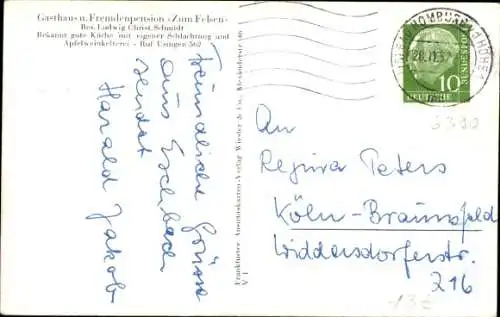 Gasthaus u. Fremdenpension »Zum Felsen«
Bes. Ludwig Christ. Schmidt
Bekannt gute Küche mit eigener Schlachtung und
Apfelweinkelterei - Ruf Usingen 562
Freundliche Grüsse
aus Eschbach
sendet
Harald Jakob
Frankfurter Ansichtskarten-Verlag Wiester & Co.
V 1
BAD HOMBURG
HÖHE
10
DEUTSCHE
BUNDESPOST
6390
An
Regina Peters
Köln-Braunsfeld
Widdersdorferstr.
216